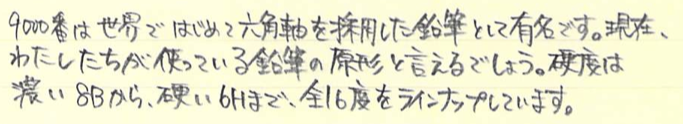 9000番は世界ではじめて六角軸を採用した鉛筆として有名です。現在、
わたしたちが使っている鉛筆の原形と言えるでしょう。硬度は
濃い8Bから、硬い6Hまで、全16度をラインナップしています。